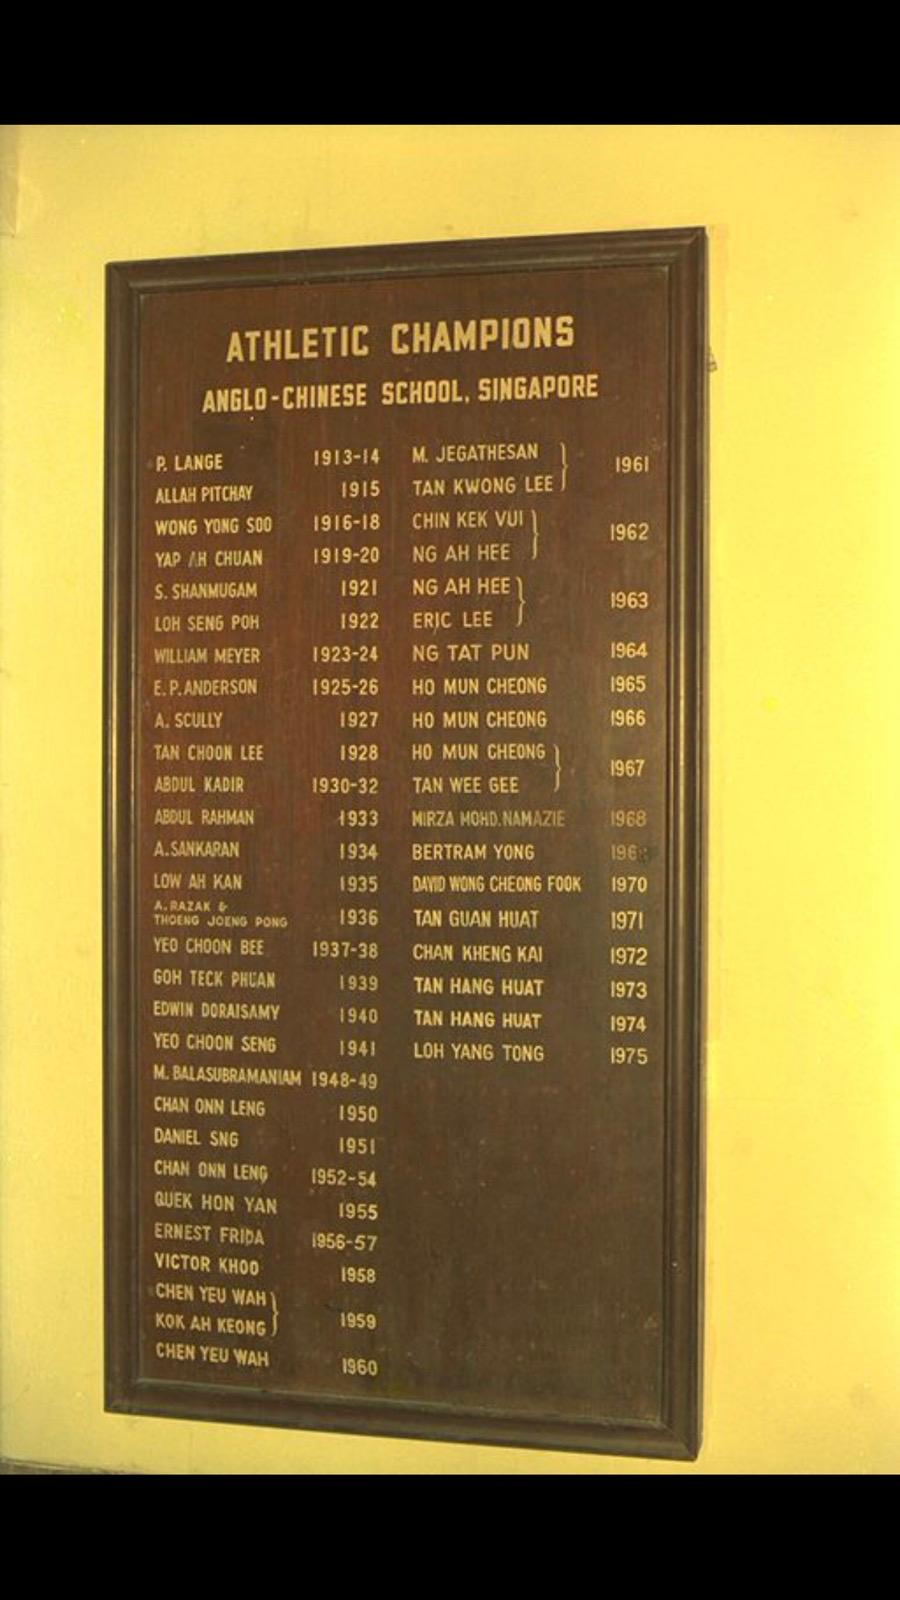 ATHLETIC CHAMPIONS
ANGLO-CHINESE SCHOOL, SINGAPORE
P. LANGE 1913-14
ALLAH PITCHAY 1915
WONG YONG SOO 1916-18
YAP AH CHUAN 1919-20
S. SHANMUGAM 1921
LOH SENG POH 1922
WILLIAM MEYER 1923-24
E. P. ANDERSON 1925-26
A. SCULLY 1927
TAN CHOON LEE 1928
ABDUL KADIR 1930-32
ABDUL RAHMAN 1933
A. SANKARAN 1934
LOW AH KAN 1935
A. RAZAK &
THOENG JOENG PONG 1936
YEO CHOON BEE 1937-38
GOH TECK PHUAN 1939
EDWIN DORAISAMY 1940
YEO CHOON SENG 1941
M. BALASUBRAMANIAM 1948-49
CHAN ONN LENG 1950
DANIEL SNG 1951
CHAN ONN LENG 1952-54
QUEK HON YAN 1955
ERNEST FRIDA 1956-57
VICTOR KHOO 1958
CHEN YEU WAH
KOK AH KEONG } 1959
CHEN YEU WAH 1960
M. JEGATHESAN
TAN KWONG LEE } 1961
CHIN KEK VUI
NG AH HEE } 1962
NG AH HEE
ERIC LEE } 1963
NG TAT PUN 1964
HO MUN CHEONG 1965
HO MUN CHEONG 1966
HO MUN CHEONG
TAN WEE GEE } 1967
MIRZA MOHD. NAMAZIE 1968
BERTRAM YONG
DAVID WONG CHEONG FOOK 1970
TAN GUAN HUAT 1971
CHAN KHENG KAI 1972
TAN HANG HUAT 1973
TAN HANG HUAT 1974
LOH YANG TONG 1975